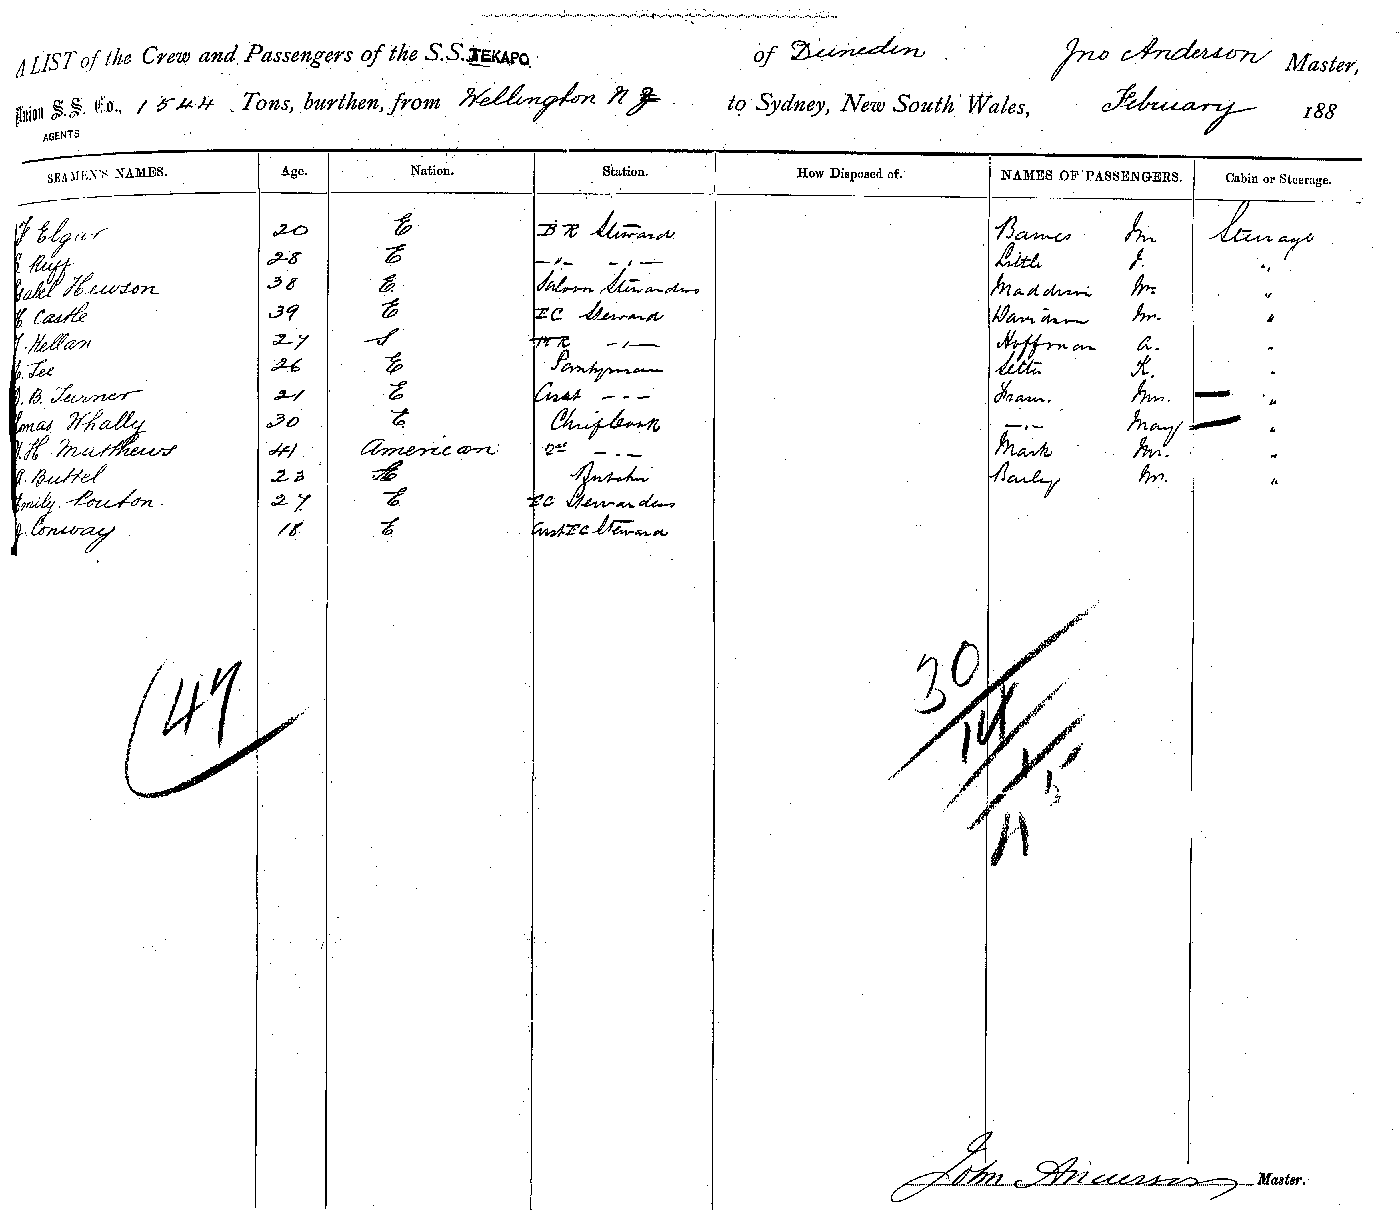 A LIST of the Crew and Passengers of the S.S. TEKAPO of Dunedin Jno Anderson Master,
Union S.S. Co., 1544 Tons, burthen, from Wellington N Z to Sydney, New South Wales, February 188
AGENTS
SEAMEN'S NAMES. Age. Nation. Station. How Disposed of. NAMES OF PASSENGERS. Cabin or Steerage.
F Elgar 20 E B R Steward Barnes Mr Steerage
Ruff 28 E —"— —"— Little J. "
Hewson 38 E Saloon Stewardess Maddison Mr "
Castle 39 E EC Steward Davidson Mr. "
Kellan 27 S —"— Hoffman A. "
Lee 26 E Pantryman K. "
B. Turner 21 E Asst - - - Mrs. "
Whally 30 E Chief Cook —"— May "
H Matthews 41 American 2nd —"— Mark Mr. "
Buttel 23 E Butcher Mr. "
Emily Pouton 27 E EC Stewardess
J. Conway 18 E Asst EC Steward
47
30
14
1
John Anderson Master.